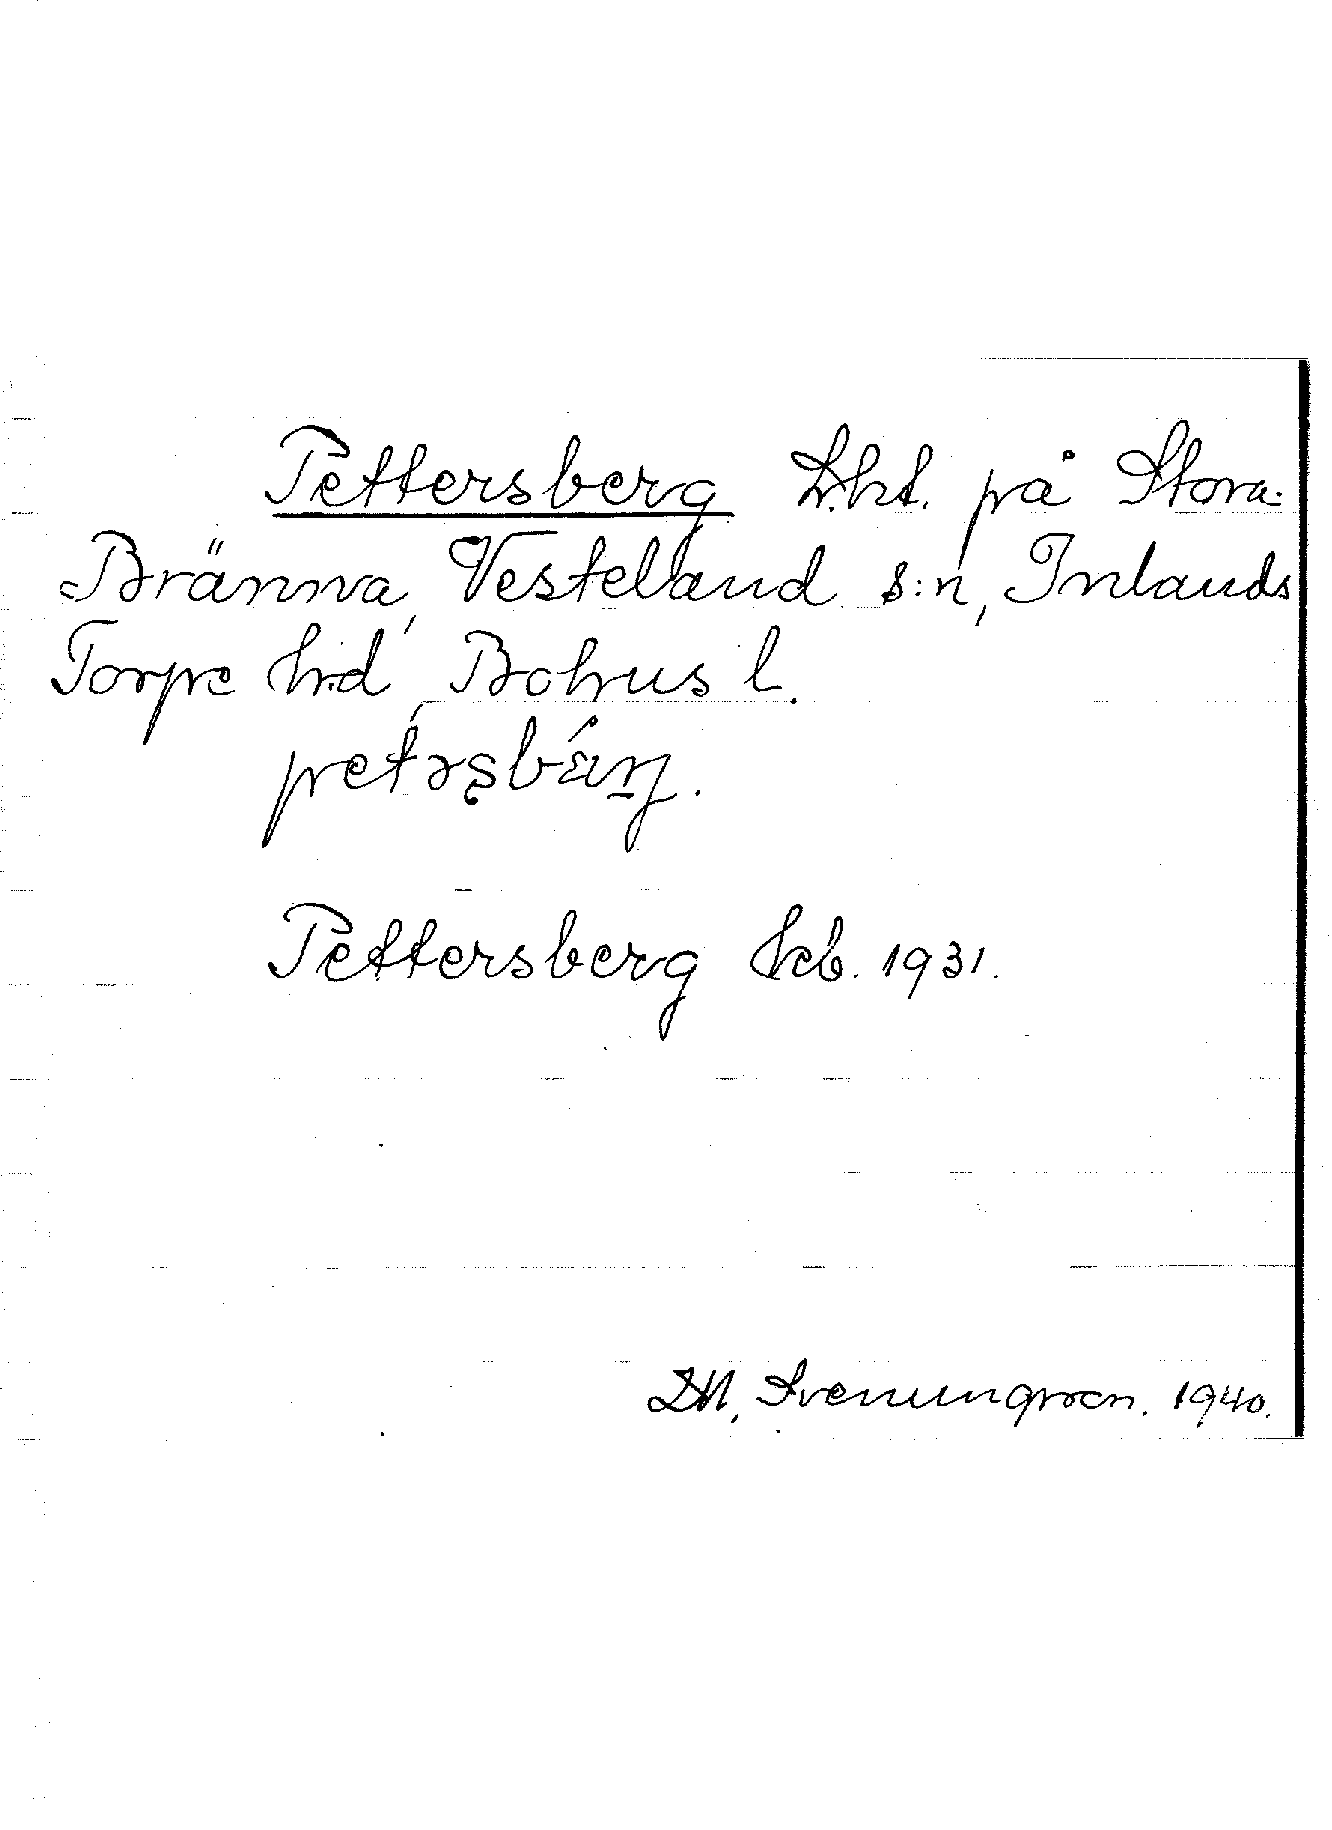 Pettersberg Lht. på Stora-
Bränna, Vesterland s:n, Inlands
Torpe hd, Bohus l.
petəʂbǽrj.
Pettersberg kb. 1931.
D.H. Svenungsson. 1940.